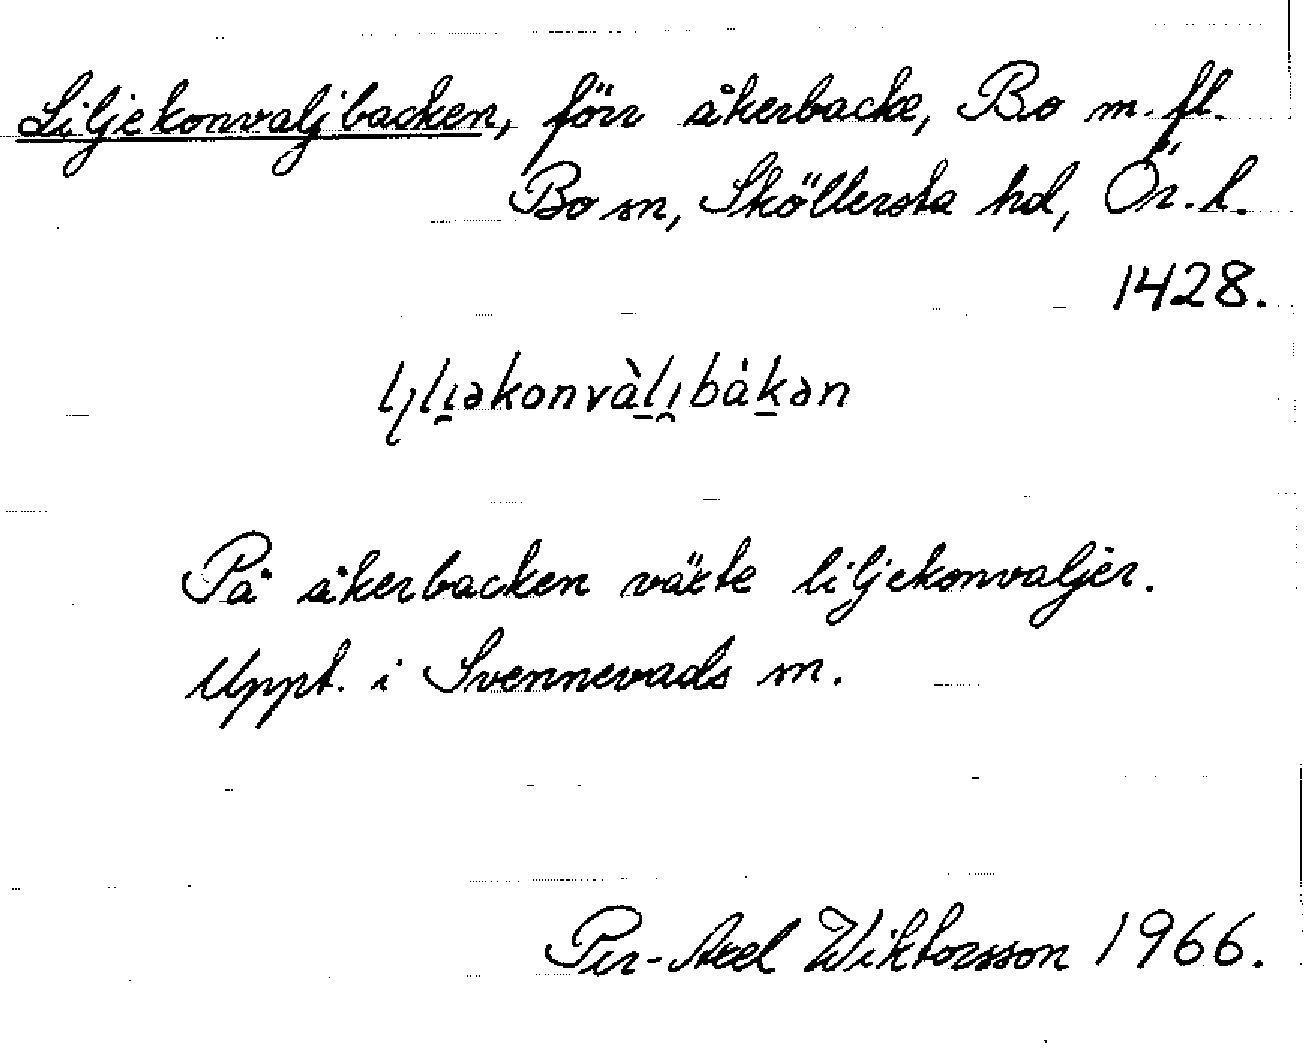 Liljekonvaljbacken, förr åkerbacke, Bo m. fl.
Bo sn, Sköllersta hd, Ör. l.
1428.
lı̨li̯əkonvàli̯bákən
På åkerbacken växte liljekonvaljer.
Uppt. i Svennevads sn.
Per-Axel Wiktorsson 1966.